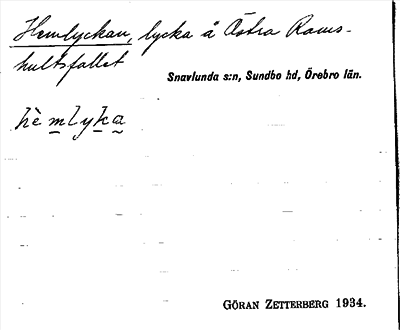 Hemlyckan, lycka å Östra Rams-
hultsfallet
Snavlunda s:n, Sundbo hd, Örebro län.
hèmlyka
GÖRAN ZETTERBERG 1934.